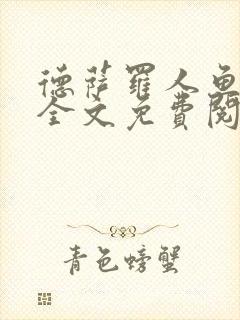 德萨罗人鱼
全文免费阅
青色螃蟹